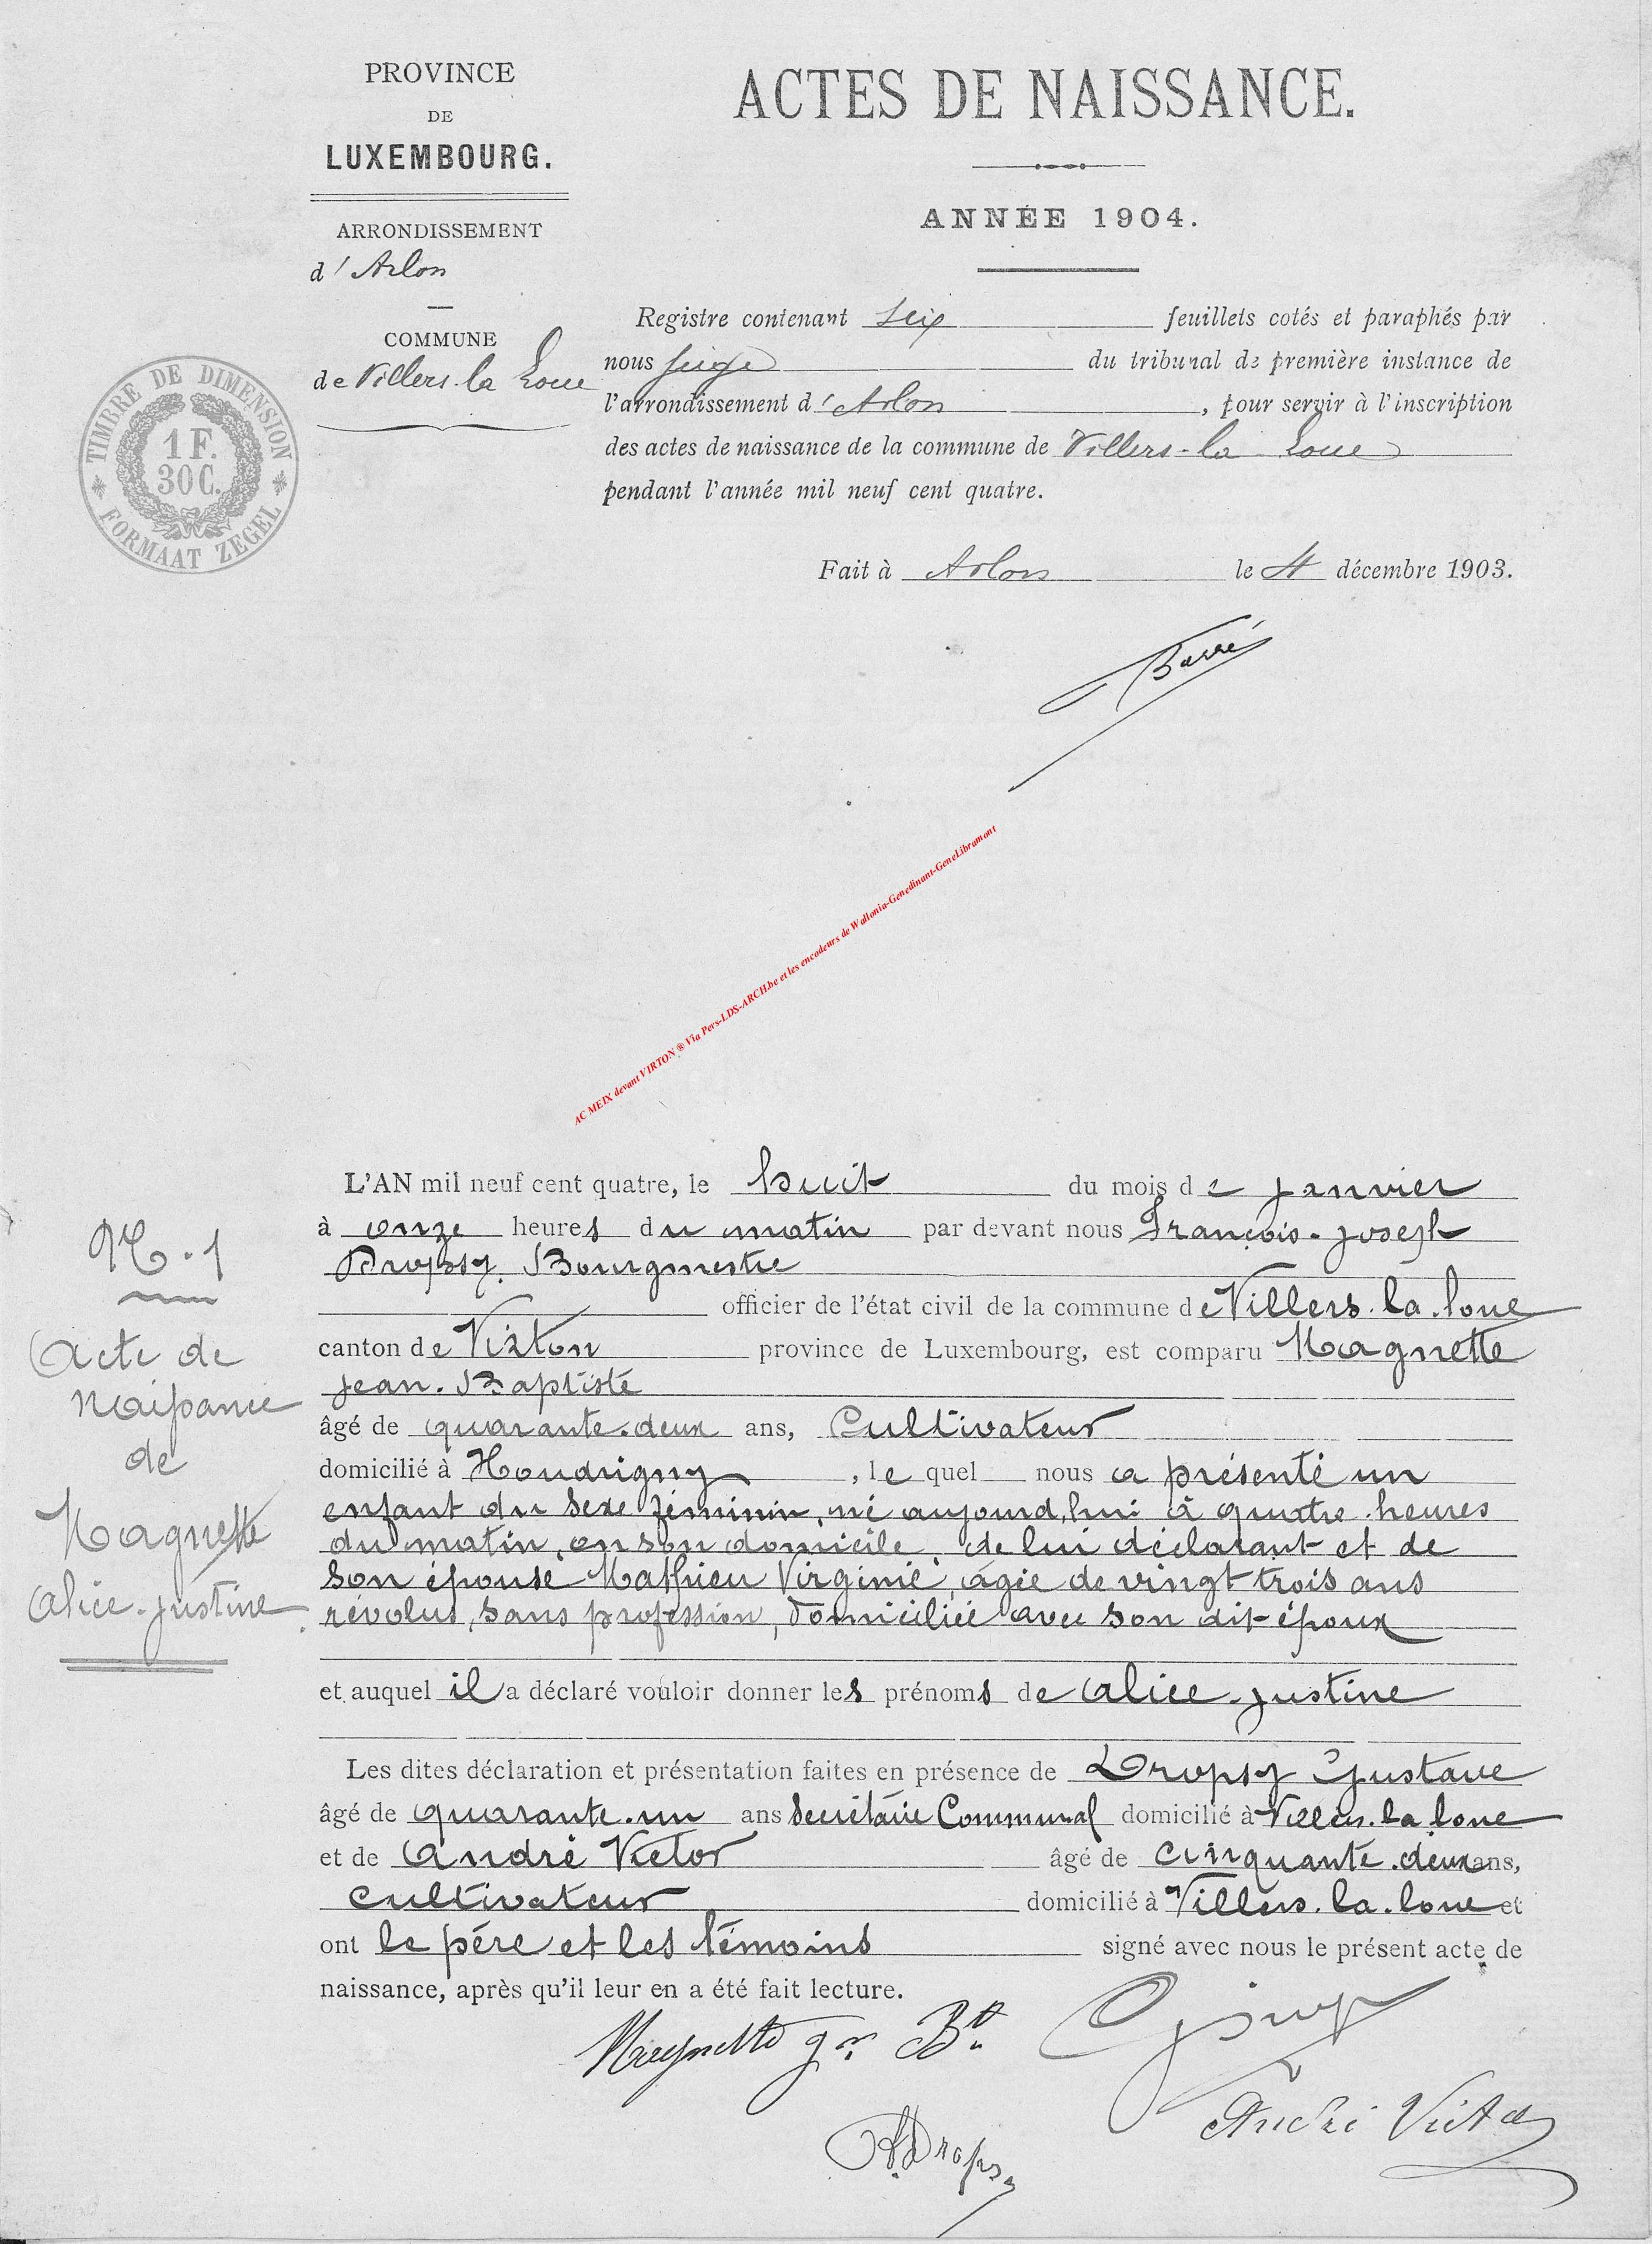 PROVINCE
DE
LUXEMBOURG.
ARRONDISSEMENT
d'Arlon
COMMUNE
de Villers-la Loue
TIMBRE DE DIMENSION
1 F.
30 C.
FORMAAT ZEGEL
ACTES DE NAISSANCE.
ANNÉE 1904.
Registre contenant six feuillets cotés et paraphés par
nous juge du tribunal de première instance de
l'arrondissement d'Arlon, pour servir à l'inscription
des actes de naissance de la commune de Villers-la-Loue
pendant l'année mil neuf cent quatre.
Fait à Arlon le 4 décembre 1903.
AC MEIX devant VIRTON ® Via Pers-LDS-ARCH.be et les encodeurs de Wallonia-Genedinant-GeneLibramont
N. 1
Acte de
Naissance
de
Magnette
Alice-Justine
L'AN mil neuf cent quatre, le huit du mois de janvier
à onze heures du matin par devant nous François-Joseph
Dropsy, Bourgmestre
officier de l'état civil de la commune de Villers-la-loue
canton de Virton province de Luxembourg, est comparu Magnette
Jean-Baptiste
âgé de quarante-deux ans, Cultivateur
domicilié à Houdrigny, lequel nous a présenté un
enfant du sexe féminin, né aujourd'hui à quatre heures
du matin, en son domicile, de lui déclarant et de
son épouse Mathieu Virginie, âgée de vingt trois ans
révolus, sans profession, domiciliée avec son dit époux
et auquel il a déclaré vouloir donner les prénoms de Alice-Justine
Les dites déclaration et présentation faites en présence de Dropsy Gustave
âgé de quarante-un ans Secrétaire Communal domicilié à Villers-la-loue
et de André Victor âgé de cinquante-deux ans,
cultivateur domicilié à Villers-la-loue et
ont le père et les témoins signé avec nous le présent acte de
naissance, après qu'il leur en a été fait lecture.
Magnette Jn Bte
André Victor
G Dropsy